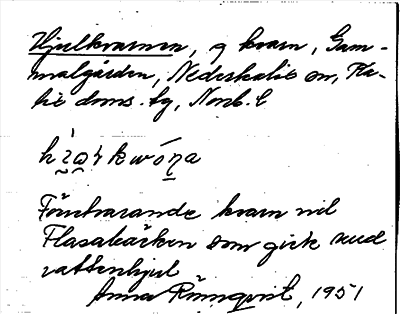 Hjulkvarnen, g kvarn, Gam-
malgården, Nederkalix sn, Ka-
lix doms. tg, Norrb. l
Försvarande kvarn vid
Flasabäcken som gick med
vattenhjul
Anna Rönnqvist, 1951